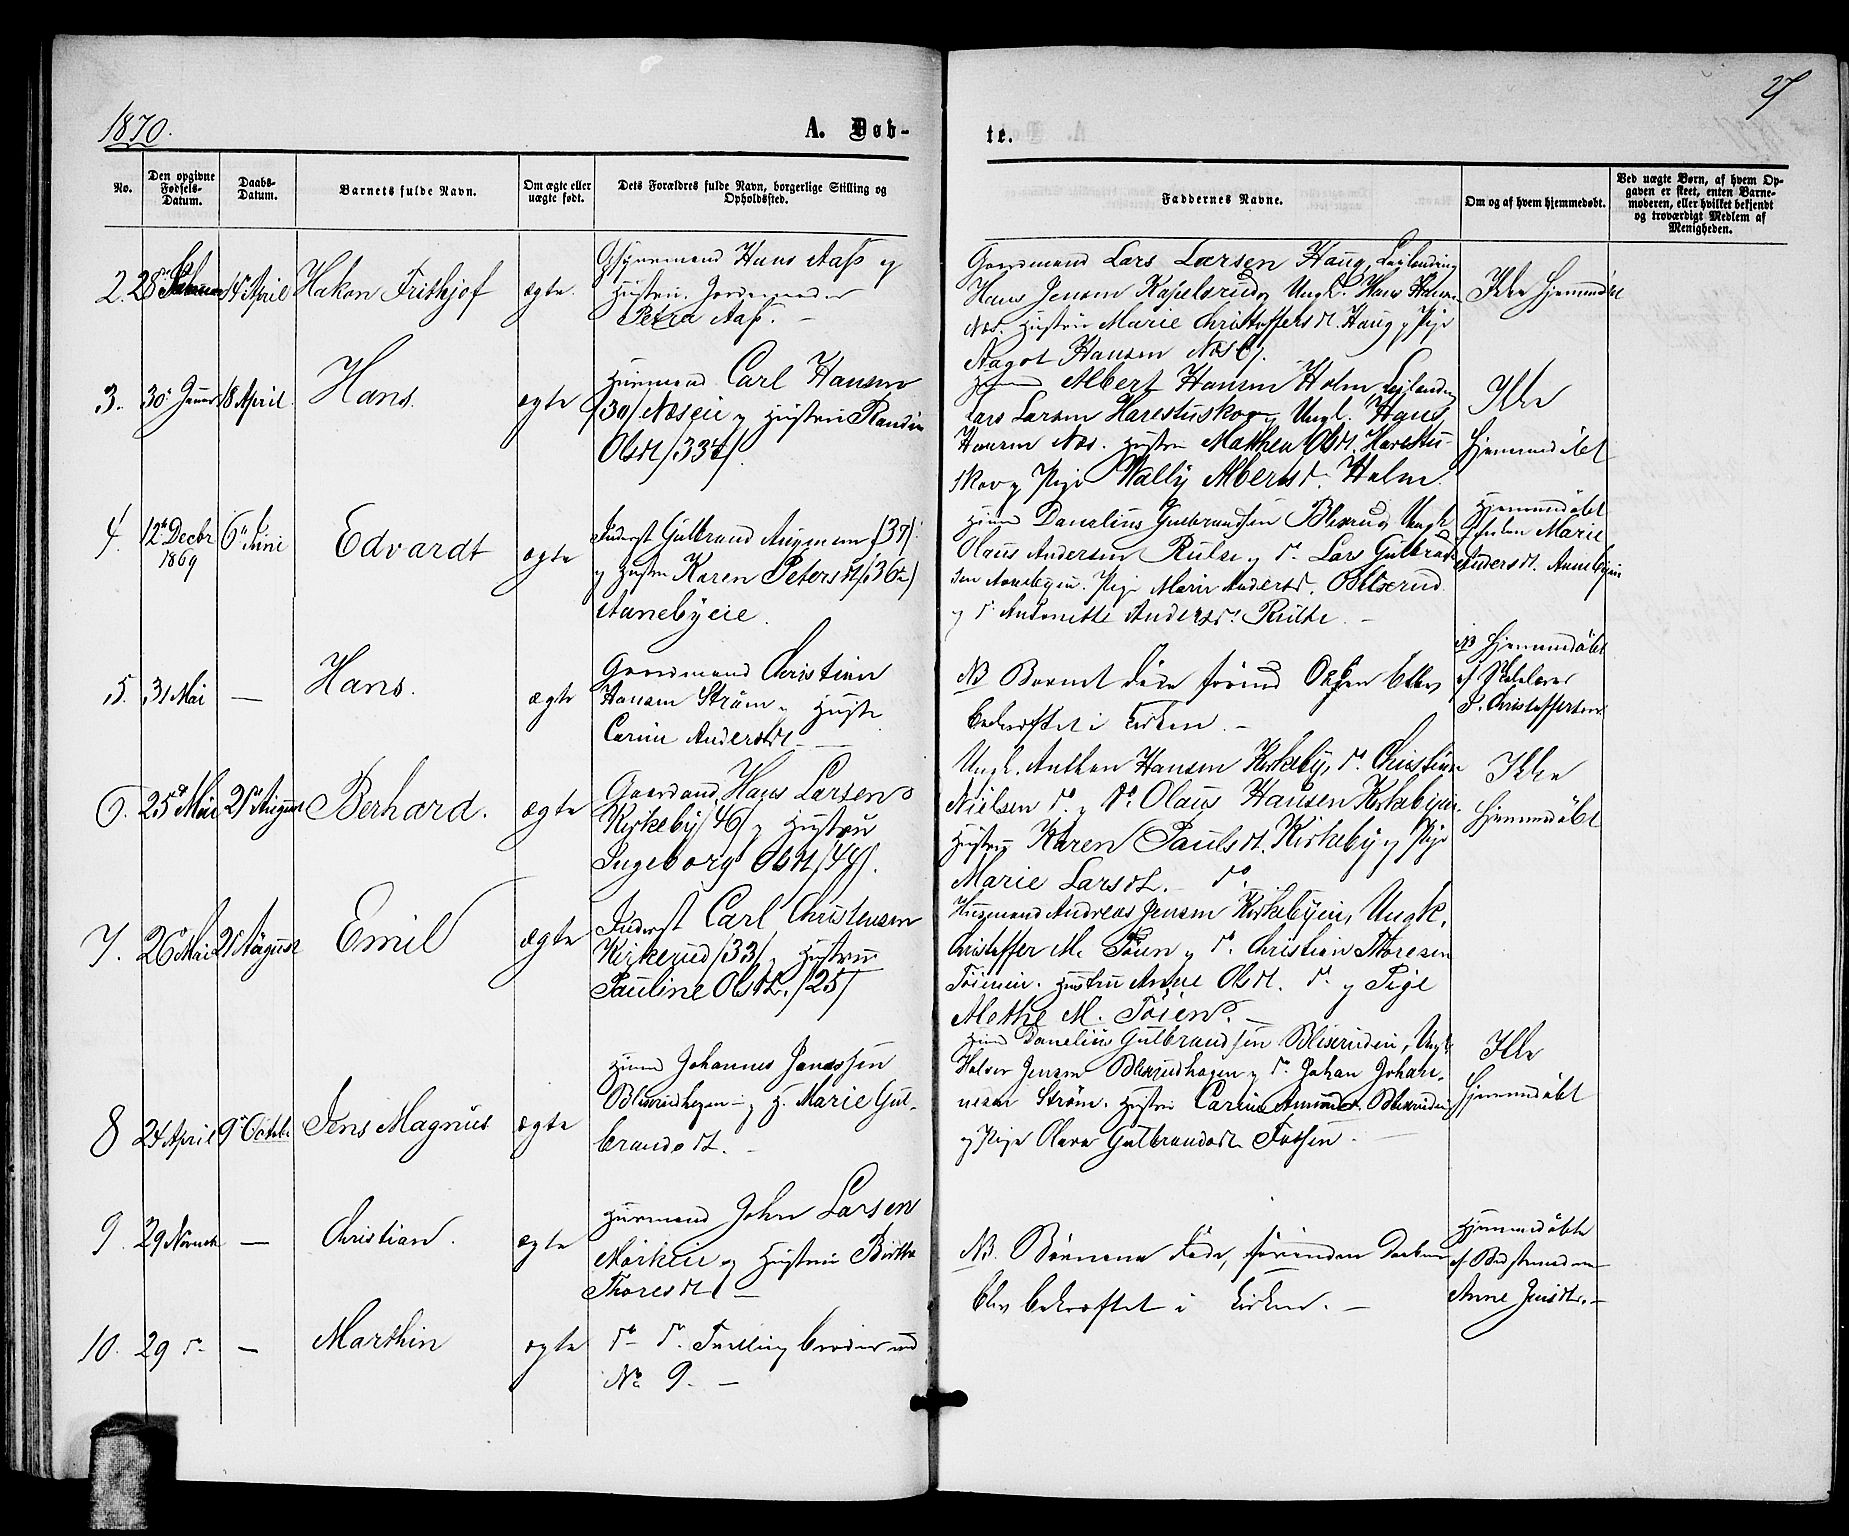 27
1870.
A. Døb-
te.
No.
Den opgivne Fødsels-Datum.
Daabs-Datum.
Barnets fulde Navn.
Om ægte eller uægte født.
Dets Forældres fulde Navn, borgerlige Stilling og Opholdssted.
Faddernes Navne.
Om og af hvem hjemmedøbt.
Ved uægte Børn, af hvem Opgaven er skeet, enten Barnemoderen, eller hvilket bekjendt og troværdigt Medlem af Menigheden.
2. 28 April Hakon Frithjof ægte.
Hans Aass og
Hustru Jordemoder
Petra Aass. —
Gaardmand Lars Larsen Haug,
Hans Jensen Kapelsrud, Ungk. Hans Hansen
Næs. Hustru Marie Christoffersdt. Haug og Pige
Aagot Hansen Næs
Ikke hjemmedøbt
3. 30 Januar 18 April Hans. ægte
Husmand Carl Hansen
/30/ Næseie og Hustru Randine
Olsdt /33/.
Albert Hansen Holm,
Lars Larsen Harestuskov, Ungk. Hans
Hansen Næs. Hustru Mathea Olsdt. Harestu-
skov og Pige Wally Albertsd. Holm.
Ikke
hjemmedøbt
4. 12te Decbr 1869 6te Juni Edvardt ægte
Inderst Gulbrand /37/
og Hustru Karen Petersdt /36/
Aanebyeie.
Danelius Gulbrandsen Blixrud, Ungk
Olaus Andersen Rulse og do. Lars Gulbrand-
sen Aanebyeie. Pige Marie Andersd. Blixrud
og do Antonette Andersd. Rulse. —
Hjemmedøbt
af Marie
Andersdt. Aanebyeie
5. 31 Mai — Hans. ægte
Gaardmand Christian
Hansen Strøm og Hustru
Carine Andersdt —
NB Barnet døde førend Daaben blev
bekræftet i Kirken. —
NB Hjemmedøbt
af Skolelærer
Christoffersen
6. 25de Mai 21de August Berhard. ægte
Gaardmand Hans Larsen
Kirkeby /46/ og Hustru
Ingeborg Olsdt /44/.
Ungk. Anthon Hansen Kirkeby, do. Christian
Nielsen do. og do. Olaus Hansen Kirkebyeie.
Hustru Karen Paulsdt. Kirkeby og Pige
Marie Larsdt. — do.
Ikke
hjemmedøbt
7. 26 Mai 21 August Emil ægte
Inderst Carl Christensen
Kirkerud /33/ og Hustru
Pauline Olsdt. /25/
Husmand Andreas Jensen Kirkebyeie, Ungk.
Christoffer M. Tøien og do. Christian Thoresen
Tøieneie. Hustru Anne Olsdt. do. og Pige
Alethe M. Tøien. —
8 24 April 9de Octobr Jens Magnus ægte
Husmd Johannes Jonassen
Blixrudhagen og H. Marie Gul-
brandsdt. —
Husmd Danelius Gulbrandsen Blixrudeie, Ungk
Halvor Jensen Blixrudhagen og do. Johan Johan-
nesen Strøm. Hustru Carine Blixrudeie
og Pige Olava Gulbrandsdt. Fossen. —
Ikke
hjemmedøbt
9. 29 Novemb — Christian. ægte
Husmand John Larsen
Mørkeie og Hustru Birthe
Thoresdt —
NB. Børnene døde, førend Daaben
blev bekræftet i Kirken. —
Hjemmedøbte
af Bedstemoderen
Anne Jensdt. —
10. 29 do — Marthin ægte
do do. Tvillingbroder med
No. 9. —